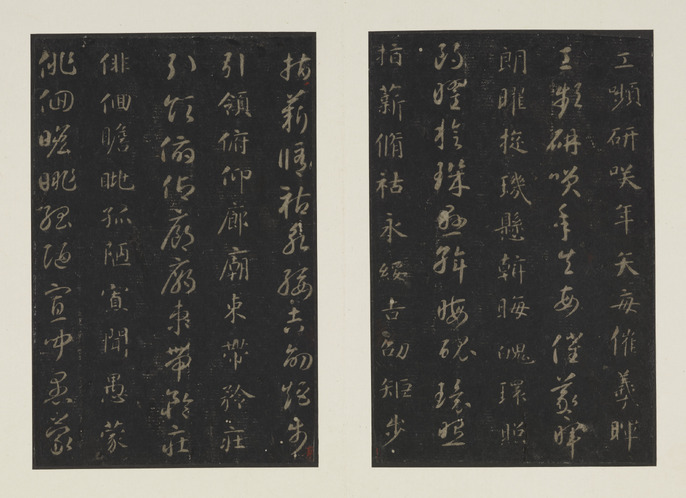 工嚬研咲年矢每催羲暉
工嚬研咲年矢每催羲暉
朗曜旋璣懸斡晦魄環照
朗曜旋璣懸斡晦魄環照
指薪脩祜永綏吉劭矩步
指薪脩祜永綏吉劭矩步
引領俯仰廊廟束帶矜莊
引領俯仰廊廟束帶矜莊
俳佪瞻眺孤陋寡聞愚蒙
俳佪瞻眺孤陋寡聞愚蒙